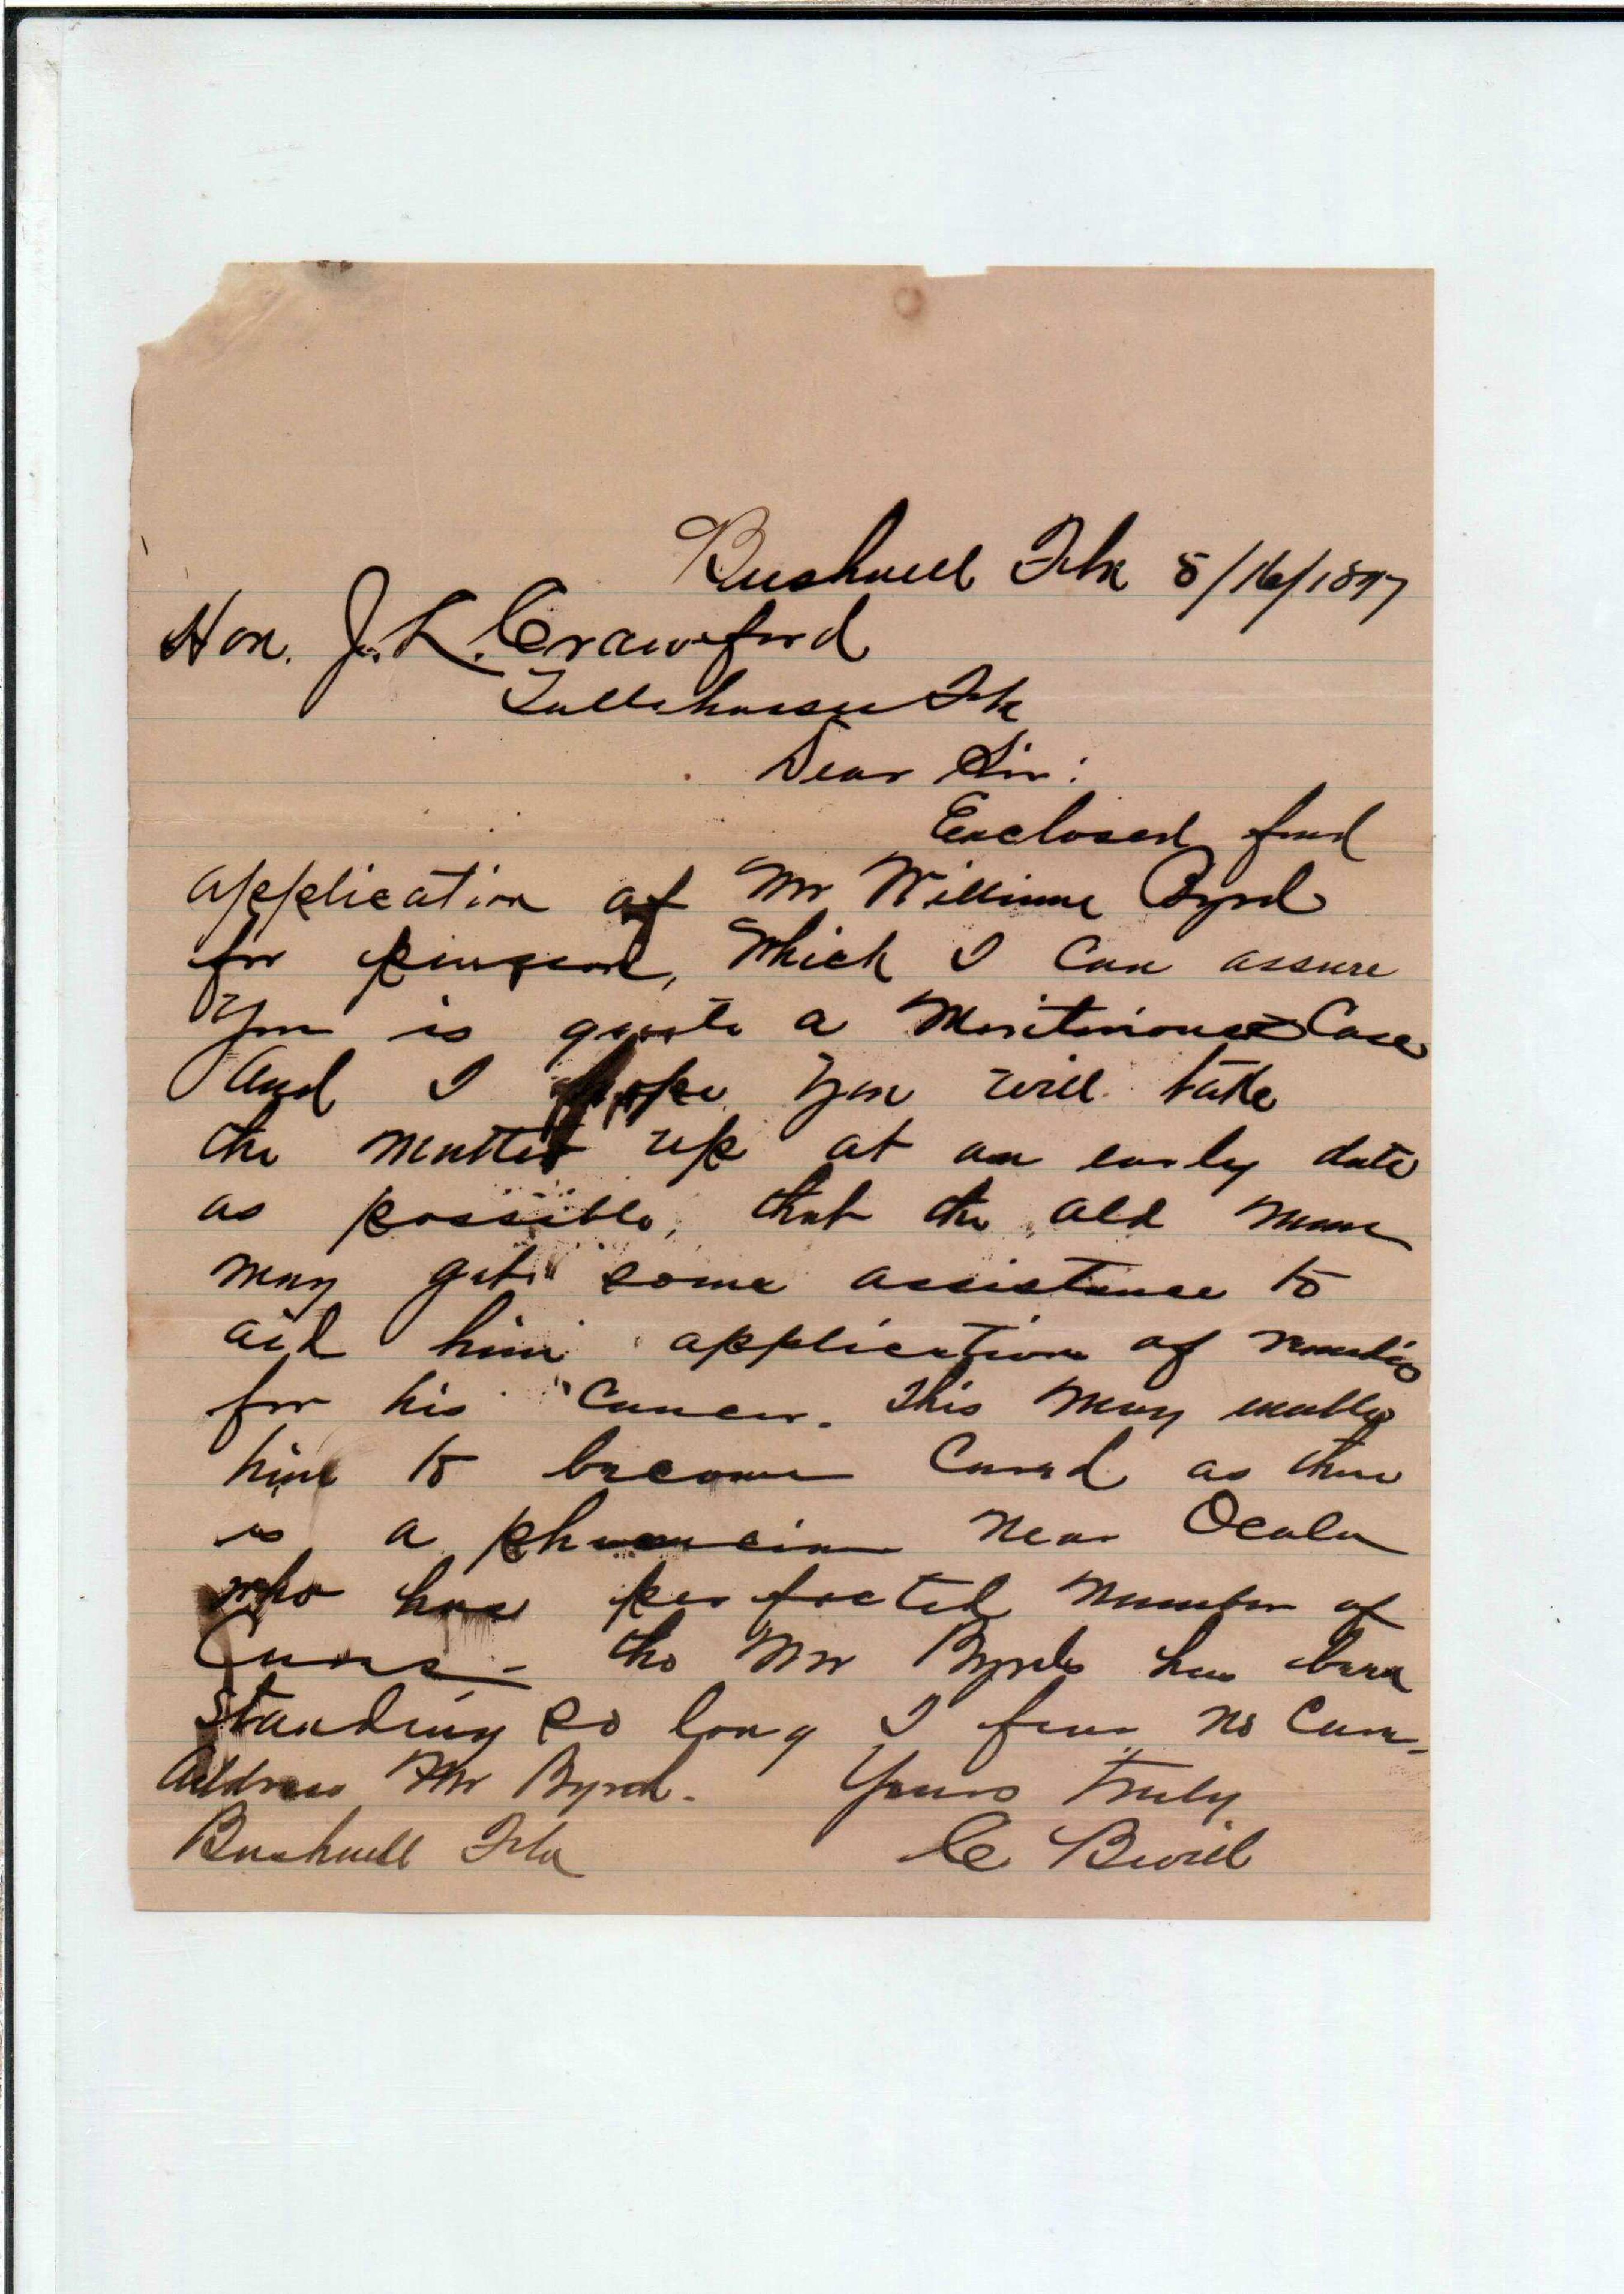 Bushnell Fla 8/16/1897
Hon. J. L. Crawford
Tallahassee Fla
Dear Sir:
Enclosed find
application of Mr William Byrd
for pension, Which I can assure
you is quite a Meritorious Case
And I hope you will take
the matter up at an early date
as possible, that the old man
may get some assistance to
aid him application of remedies
for his Cancer. This may enable
him to become Cured as there
is a physician near Ocala
who has perfected number of
Cures - tho Mr Byrds has been
standing so long I fear no Cure -
Address Mr Byrd. Yours Truly
Bushnell Fla